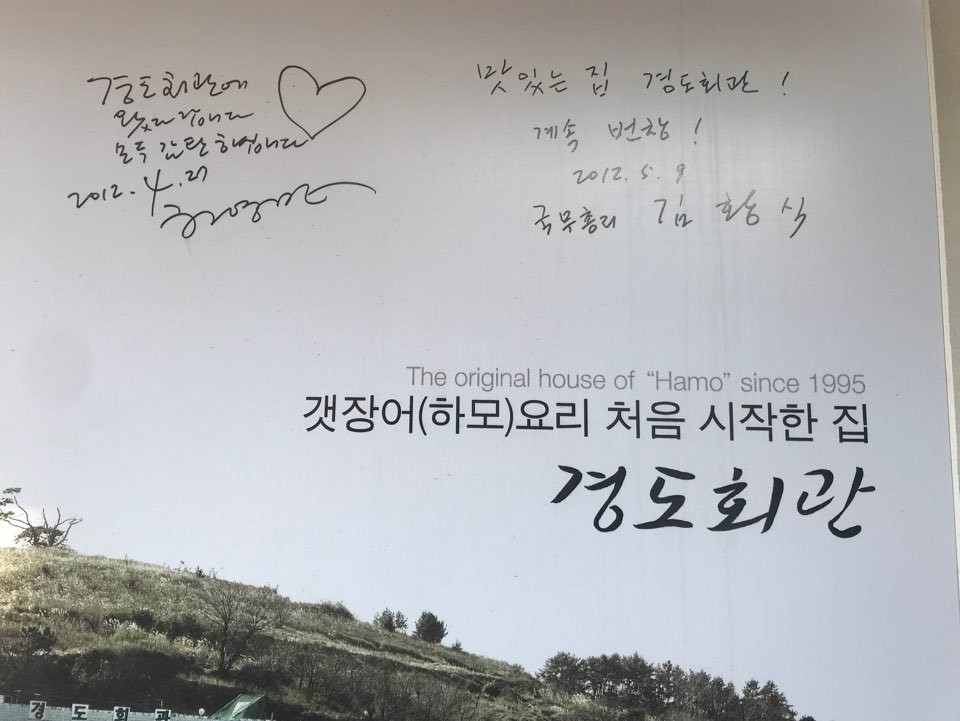 경도회관에
왔다 갑니다
모두 감탄하십니다
2012. 4. 27
맛있는 집 경도회관 !
계속 번창 !
2012. 5. 9
국무총리 김황식
The original house of “Hamo” since 1995
갯장어(하모)요리 처음 시작한 집
경도회관
경도회관